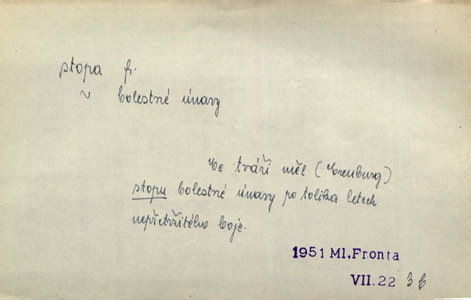 stopa f.
~ bolestné únavy
Ve tváři měl (Erenburg)
stopu bolestné únavy po tolika letech
nepřetržitého boje.
1951 Ml. Fronta
VII. 22 3b